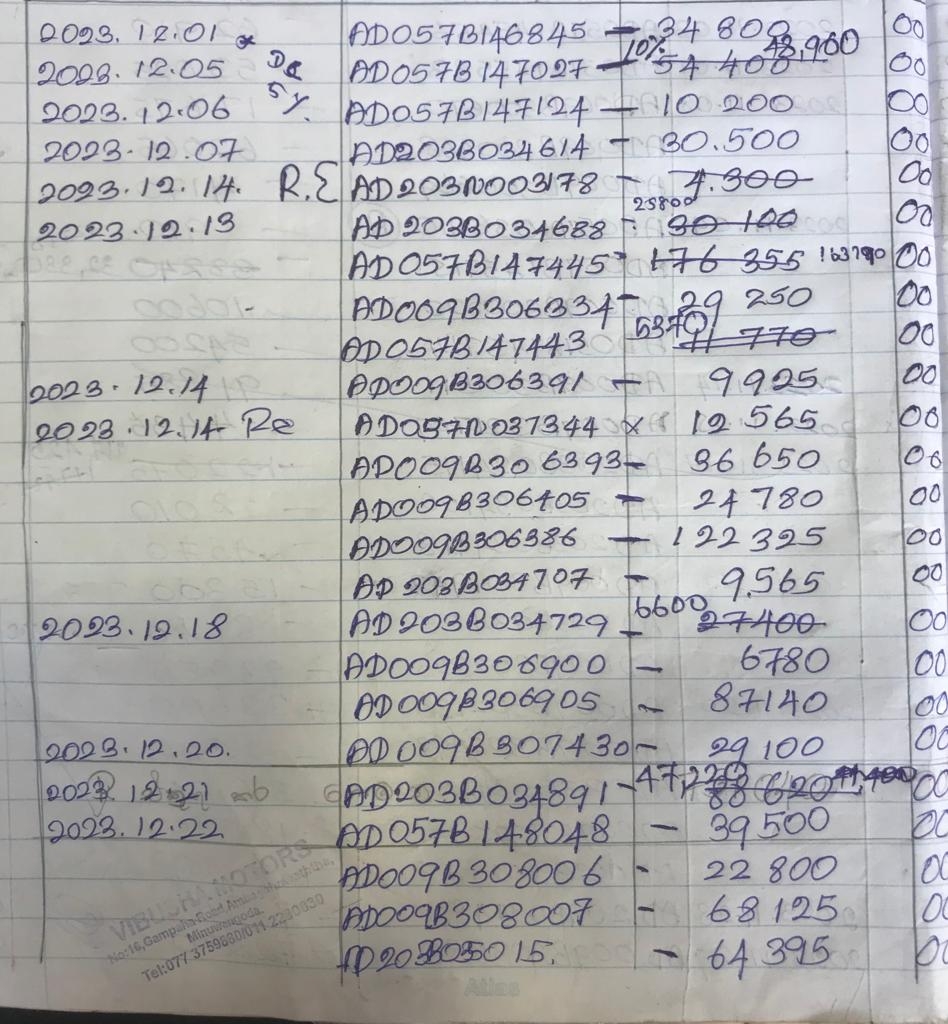 2023.12.01 * AD057B146845 - 34 800 00
2023.12.05 De 5%. AD057B147027 - 10% 54 400 48,960 00
2023.12.06 AD057B147124 - 10 200 00
2023.12.07 AD203B034614 - 30.500 00
2023.12.14. R.E AD203N003178 - 4.300 00
2023.12.13 AD203B034688 - 25800 30 100 00
AD057B147445 - 176 355 163790 00
AD009B306334 - 29 250 00
AD057B147443 5370 11 770 00
2023.12.14 AD009B306391 - 9925 00
2023.12.14 Re AD057N037344 x 12 565 00
AD009B306393 - 36 650 00
AD009B306405 - 24 780 00
AD009B306386 - 122 325 00
AD203B034707 - 9.565 00
2023.12.18 AD203B034729 - 6600 27400 00
AD009B306900 - 6780 00
AD009B306905 - 87140 00
2023.12.20. AD009B307430 - 29 100 00
2023.12.21 AD203B034891 - 88 620 00
2023.12.22 AD057B148048 - 39 500 00
AD009B308006 - 22 800 00
AD009B308007 - 68 125 00
015. - 64 395 00
VIBUSHA MOTORS
No:16, Gampaha Road,
Minuwangoda.
Tel:077 3759880/011 2280830
Atlas